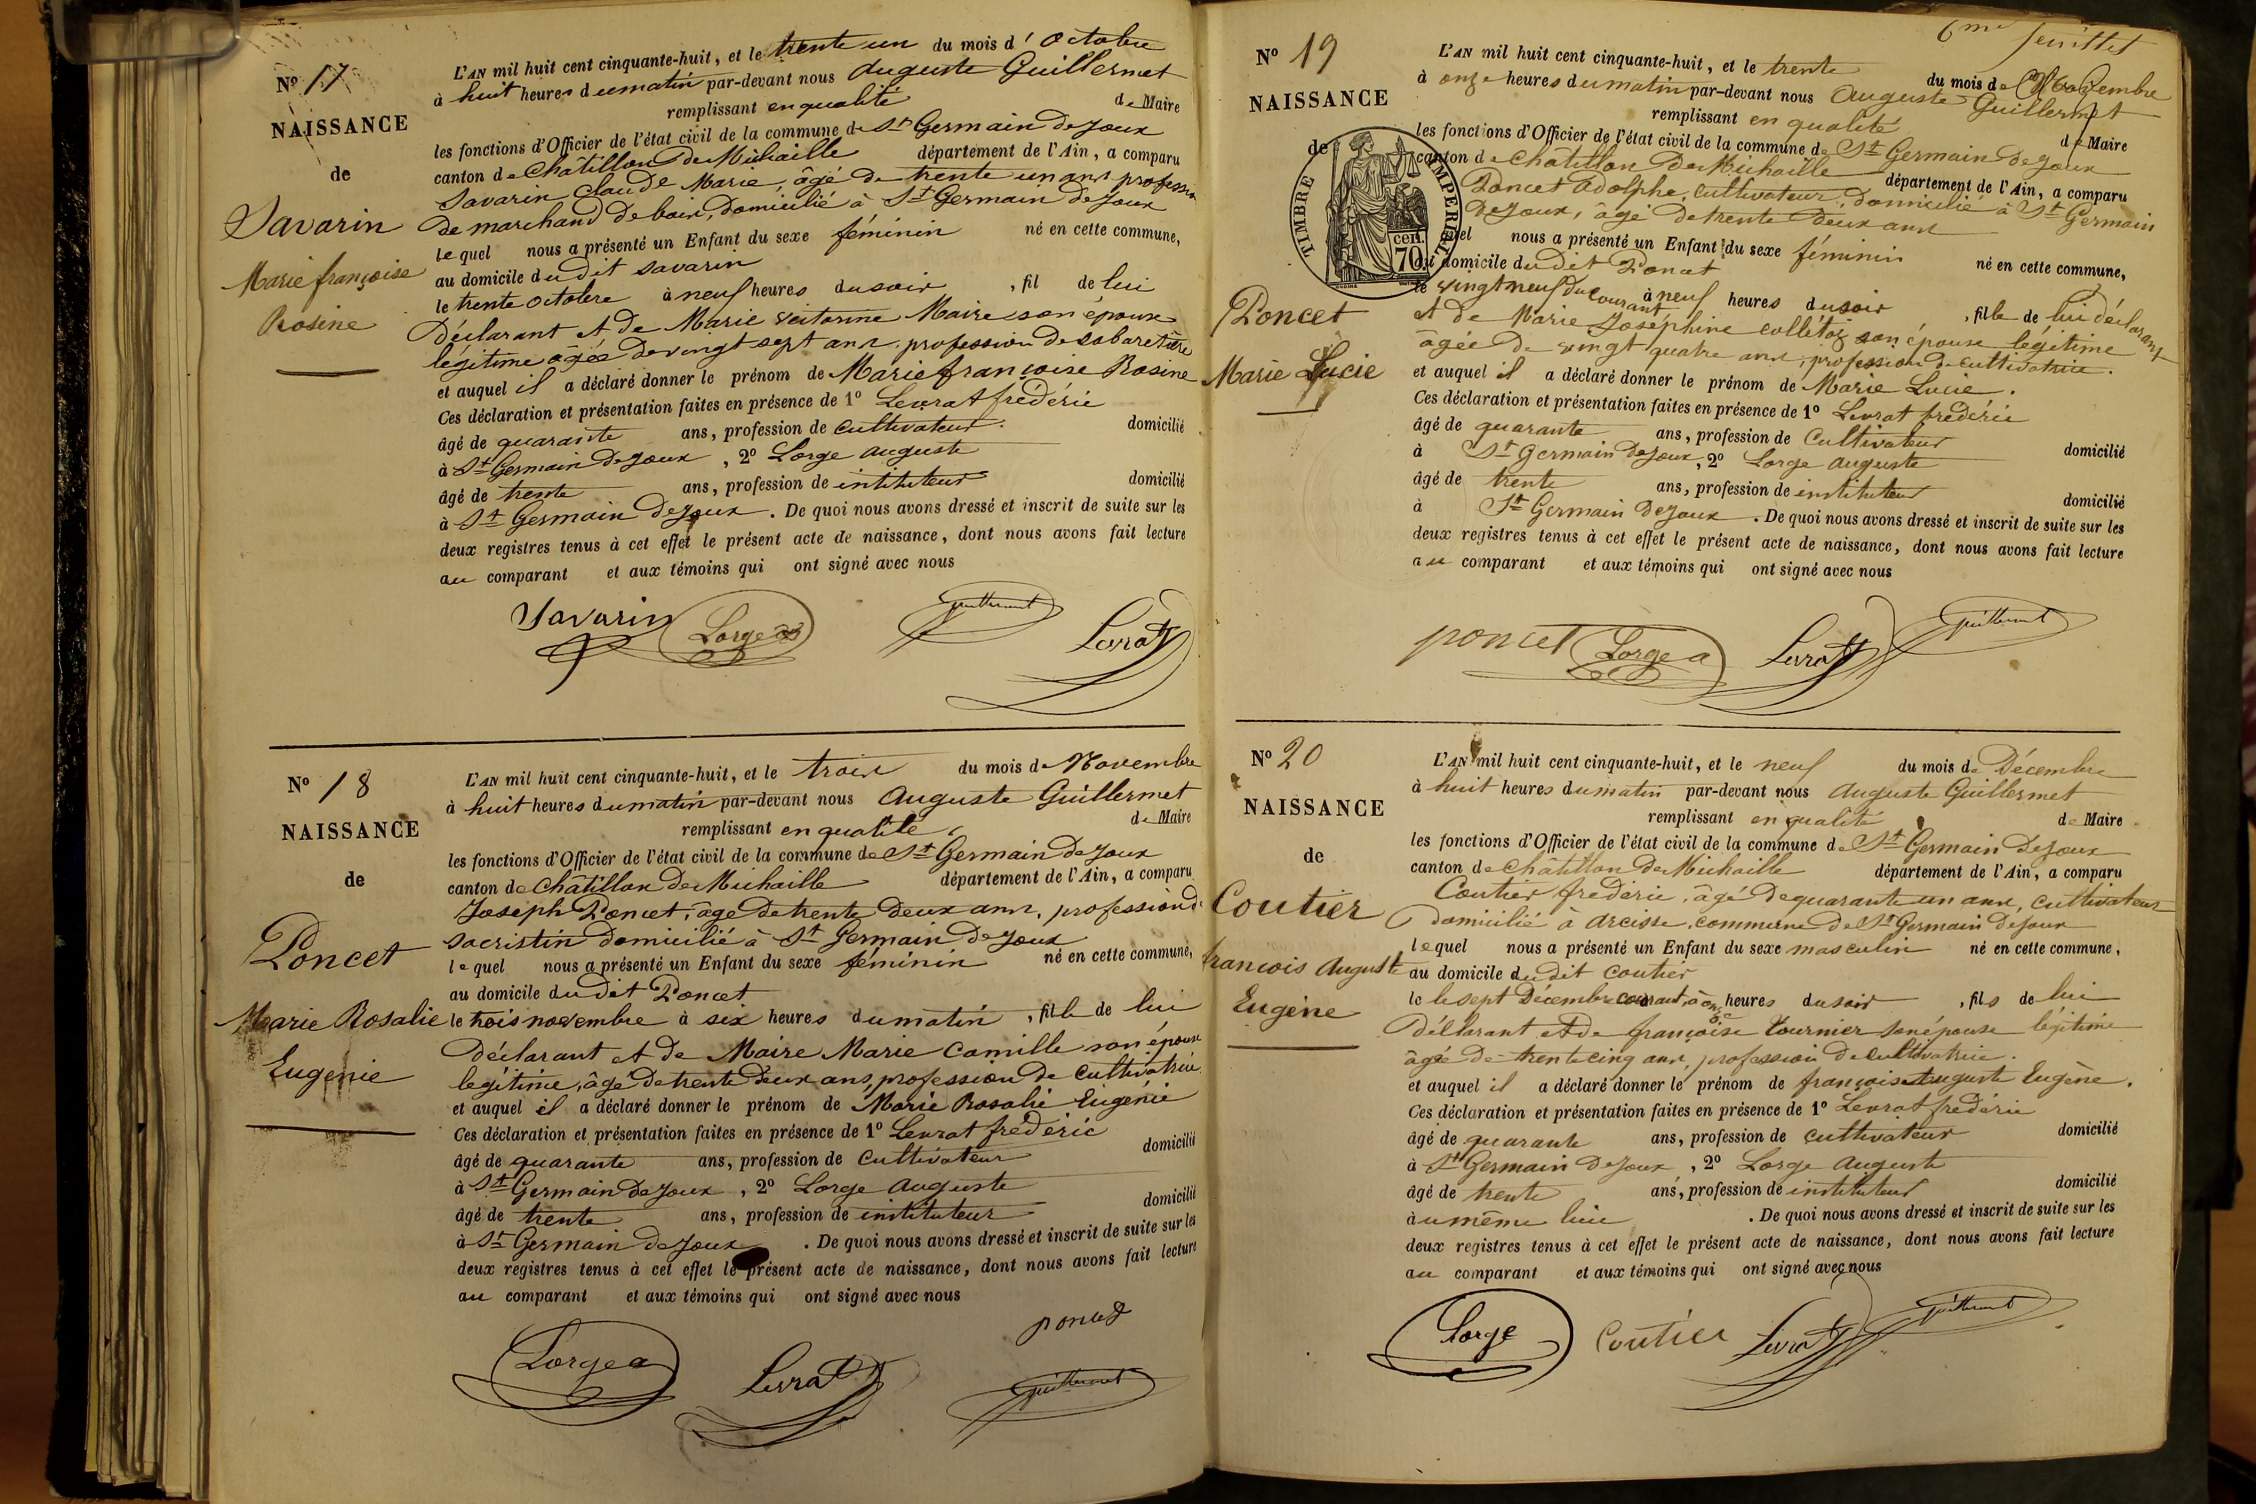 Nº 17
NAISSANCE
de
Savarin
Marie françoise
Rosine
L'AN mil huit cent cinquante-huit, et le trente un du mois d' Octobre
à huit heures du matin par-devant nous Auguste Guillermet
remplissant en qualité de Maire
les fonctions d'Officier de l'état civil de la commune de St Germain De Joux
canton de Châtillon De Michaille département de l'Ain, a comparu
Savarin Claude Marie, âgé de trente un ans profession
De marchand De bois, Domicilié à St Germain De Joux
le quel nous a présenté un Enfant du sexe féminin né en cette commune,
au domicile du Dit Savarin
le trente octobre à neuf heures du soir, fil de lui
Déclarant et de Marie victorine Maire son épouse
légitime âgée de vingt sept ans, profession de cabaretière
et auquel il a déclaré donner le prénom de Marie françoise Rosine
Ces déclaration et présentation faites en présence de 1º Levrat frédéric
âgé de quarante ans, profession de cultivateur. domicilié
à St Germain De Joux, 2º Lorge auguste
âgé de trente ans, profession de instituteur domicilié
à St Germain De Joux. De quoi nous avons dressé et inscrit de suite sur les
deux registres tenus à cet effet le présent acte de naissance, dont nous avons fait lecture
au comparant et aux témoins qui ont signé avec nous
Savarin Lorge a Guillermet Levrat
Nº 18
NAISSANCE
de
Poncet
Marie Rosalie
Eugenie
L'AN mil huit cent cinquante-huit, et le trois du mois de Novembre
à huit heures du matin par-devant nous Auguste Guillermet
remplissant en qualité de Maire
les fonctions d'Officier de l'état civil de la commune de St Germain De Joux
canton de Châtillon De Michaille département de l'Ain, a comparu
Joseph Poncet, âgé De trente Deux ans, profession de
sacristin domicilié à St Germain De Joux
le quel nous a présenté un Enfant du sexe féminin né en cette commune,
au domicile du Dit Poncet
le trois novembre à six heures du matin, fille de lui
Déclarant et de Maire Marie Camille son épouse
légitime, âgé De trente Deux ans, profession de cultivatrice
et auquel il a déclaré donner le prénom de Marie Rosalie Eugénie
Ces déclaration et présentation faites en présence de 1º Levrat fredéric
âgé de quarante ans, profession de cultivateur domicilié
à St Germain De Joux, 2º Lorge Auguste
âgé de trente ans, profession de instituteur domicilié
à St Germain De Joux. De quoi nous avons dressé et inscrit de suite sur les
deux registres tenus à cet effet le présent acte de naissance, dont nous avons fait lecture
au comparant et aux témoins qui ont signé avec nous
poncet
Lorge a Levrat Guillermet
6me feuillet
Nº 19
NAISSANCE
de
TIMBRE IMPERIAL
70 cen.
Poncet
Marie Lucie
L'AN mil huit cent cinquante-huit, et le trente du mois de Novembre
à onze heures du matin par-devant nous Auguste Guillermet
remplissant en qualité de Maire
les fonctions d'Officier de l'état civil de la commune de St Germain De Joux
canton de Châtillon De Michaille département de l'Ain, a comparu
Poncet Adolphe, cultivateur, domicilié à St Germain
De Joux, âgé de trente Deux ans
quel nous a présenté un Enfant du sexe féminin né en cette commune,
au domicile du Dit Poncet
le vingt neuf du courant à neuf heures du soir, fille de lui déclarant
et de Marie Joséphine collétaz son épouse légitime
âgée de vingt quatre ans, profession de cultivatrice.
et auquel il a déclaré donner le prénom de Marie Lucie.
Ces déclaration et présentation faites en présence de 1º Levrat frédéric
âgé de quarante ans, profession de cultivateur domicilié
à St Germain De Joux, 2º Lorge auguste
âgé de trente ans, profession de instituteur domicilié
à St Germain De Joux. De quoi nous avons dressé et inscrit de suite sur les
deux registres tenus à cet effet le présent acte de naissance, dont nous avons fait lecture
au comparant et aux témoins qui ont signé avec nous
poncet Lorge a Levrat Guillermet
Nº 20
NAISSANCE
de
Coutier
francois Auguste
Eugène
L'AN mil huit cent cinquante-huit, et le neuf du mois de Décembre
à huit heures du matin par-devant nous Auguste Guillermet
remplissant en qualité de Maire
les fonctions d'Officier de l'état civil de la commune de St Germain De Joux
canton de Châtillon De Michaille département de l'Ain, a comparu
Coutier frédéric, âgé de quarante un ans, cultivateur
Domicilié à arcisse, commune de St Germain De Joux
le quel nous a présenté un Enfant du sexe masculin né en cette commune,
au domicile du dit Coutier
le le sept Décembre courant, à onze heures du soir, fils de lui
Déclarant et de françoise Tournier son épouse légitime
âgée de trente cinq ans, profession De cultivatrice.
et auquel il a déclaré donner le prénom de françois Auguste Eugène.
Ces déclaration et présentation faites en présence de 1º Levrat frédéric
âgé de quarante ans, profession de cultivateur domicilié
à St Germain De Joux, 2º Lorge Auguste
âgé de trente ans, profession de instituteur domicilié
à u même lieu. De quoi nous avons dressé et inscrit de suite sur les
deux registres tenus à cet effet le présent acte de naissance, dont nous avons fait lecture
au comparant et aux témoins qui ont signé avec nous
Lorge Coutier Levrat Guillermet